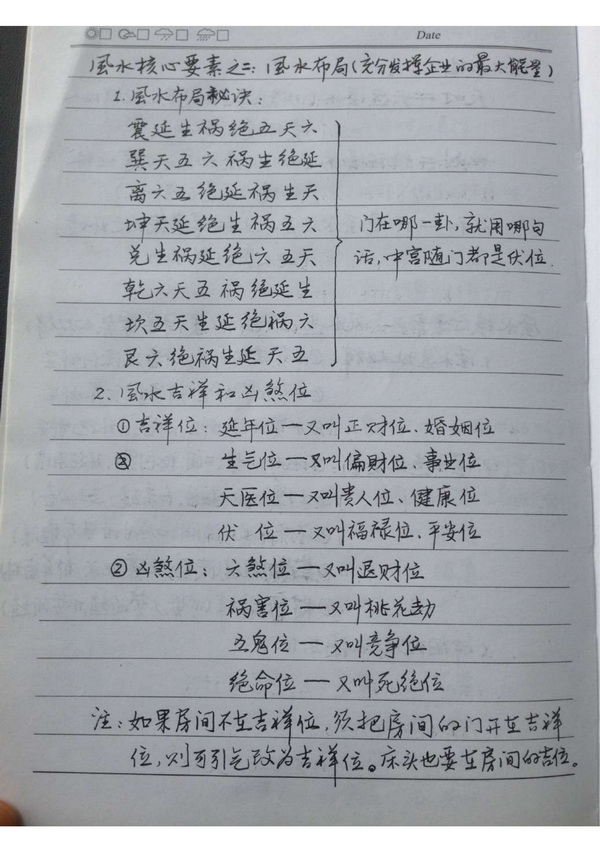 Date
風水核心要素之二：風水布局(充分发挥企业的最大能量)
1.風水布局秘诀：
震延生祸绝五天六
巽天五六祸生绝延
离六五绝延祸生天
坤天延绝生祸五六
兑生祸延绝六五天
乾六天五祸绝延生
坎五天生延绝祸六
艮六绝祸生延天五
门在哪一卦，就用哪句
话，中宫随门都是伏位.
2.風水吉祥和凶煞位
①吉祥位：延年位—又叫正财位、婚姻位
生气位—又叫偏财位、事业位
天医位—又叫贵人位、健康位
伏 位—又叫福禄位、平安位
②凶煞位：六煞位—又叫退财位
祸害位—又叫桃花劫
五鬼位—又叫竞争位
绝命位—又叫死绝位
注：如果房间不在吉祥位，须把房间的门开在吉祥
位，则可引气改为吉祥位。床头也要在房间的吉位。